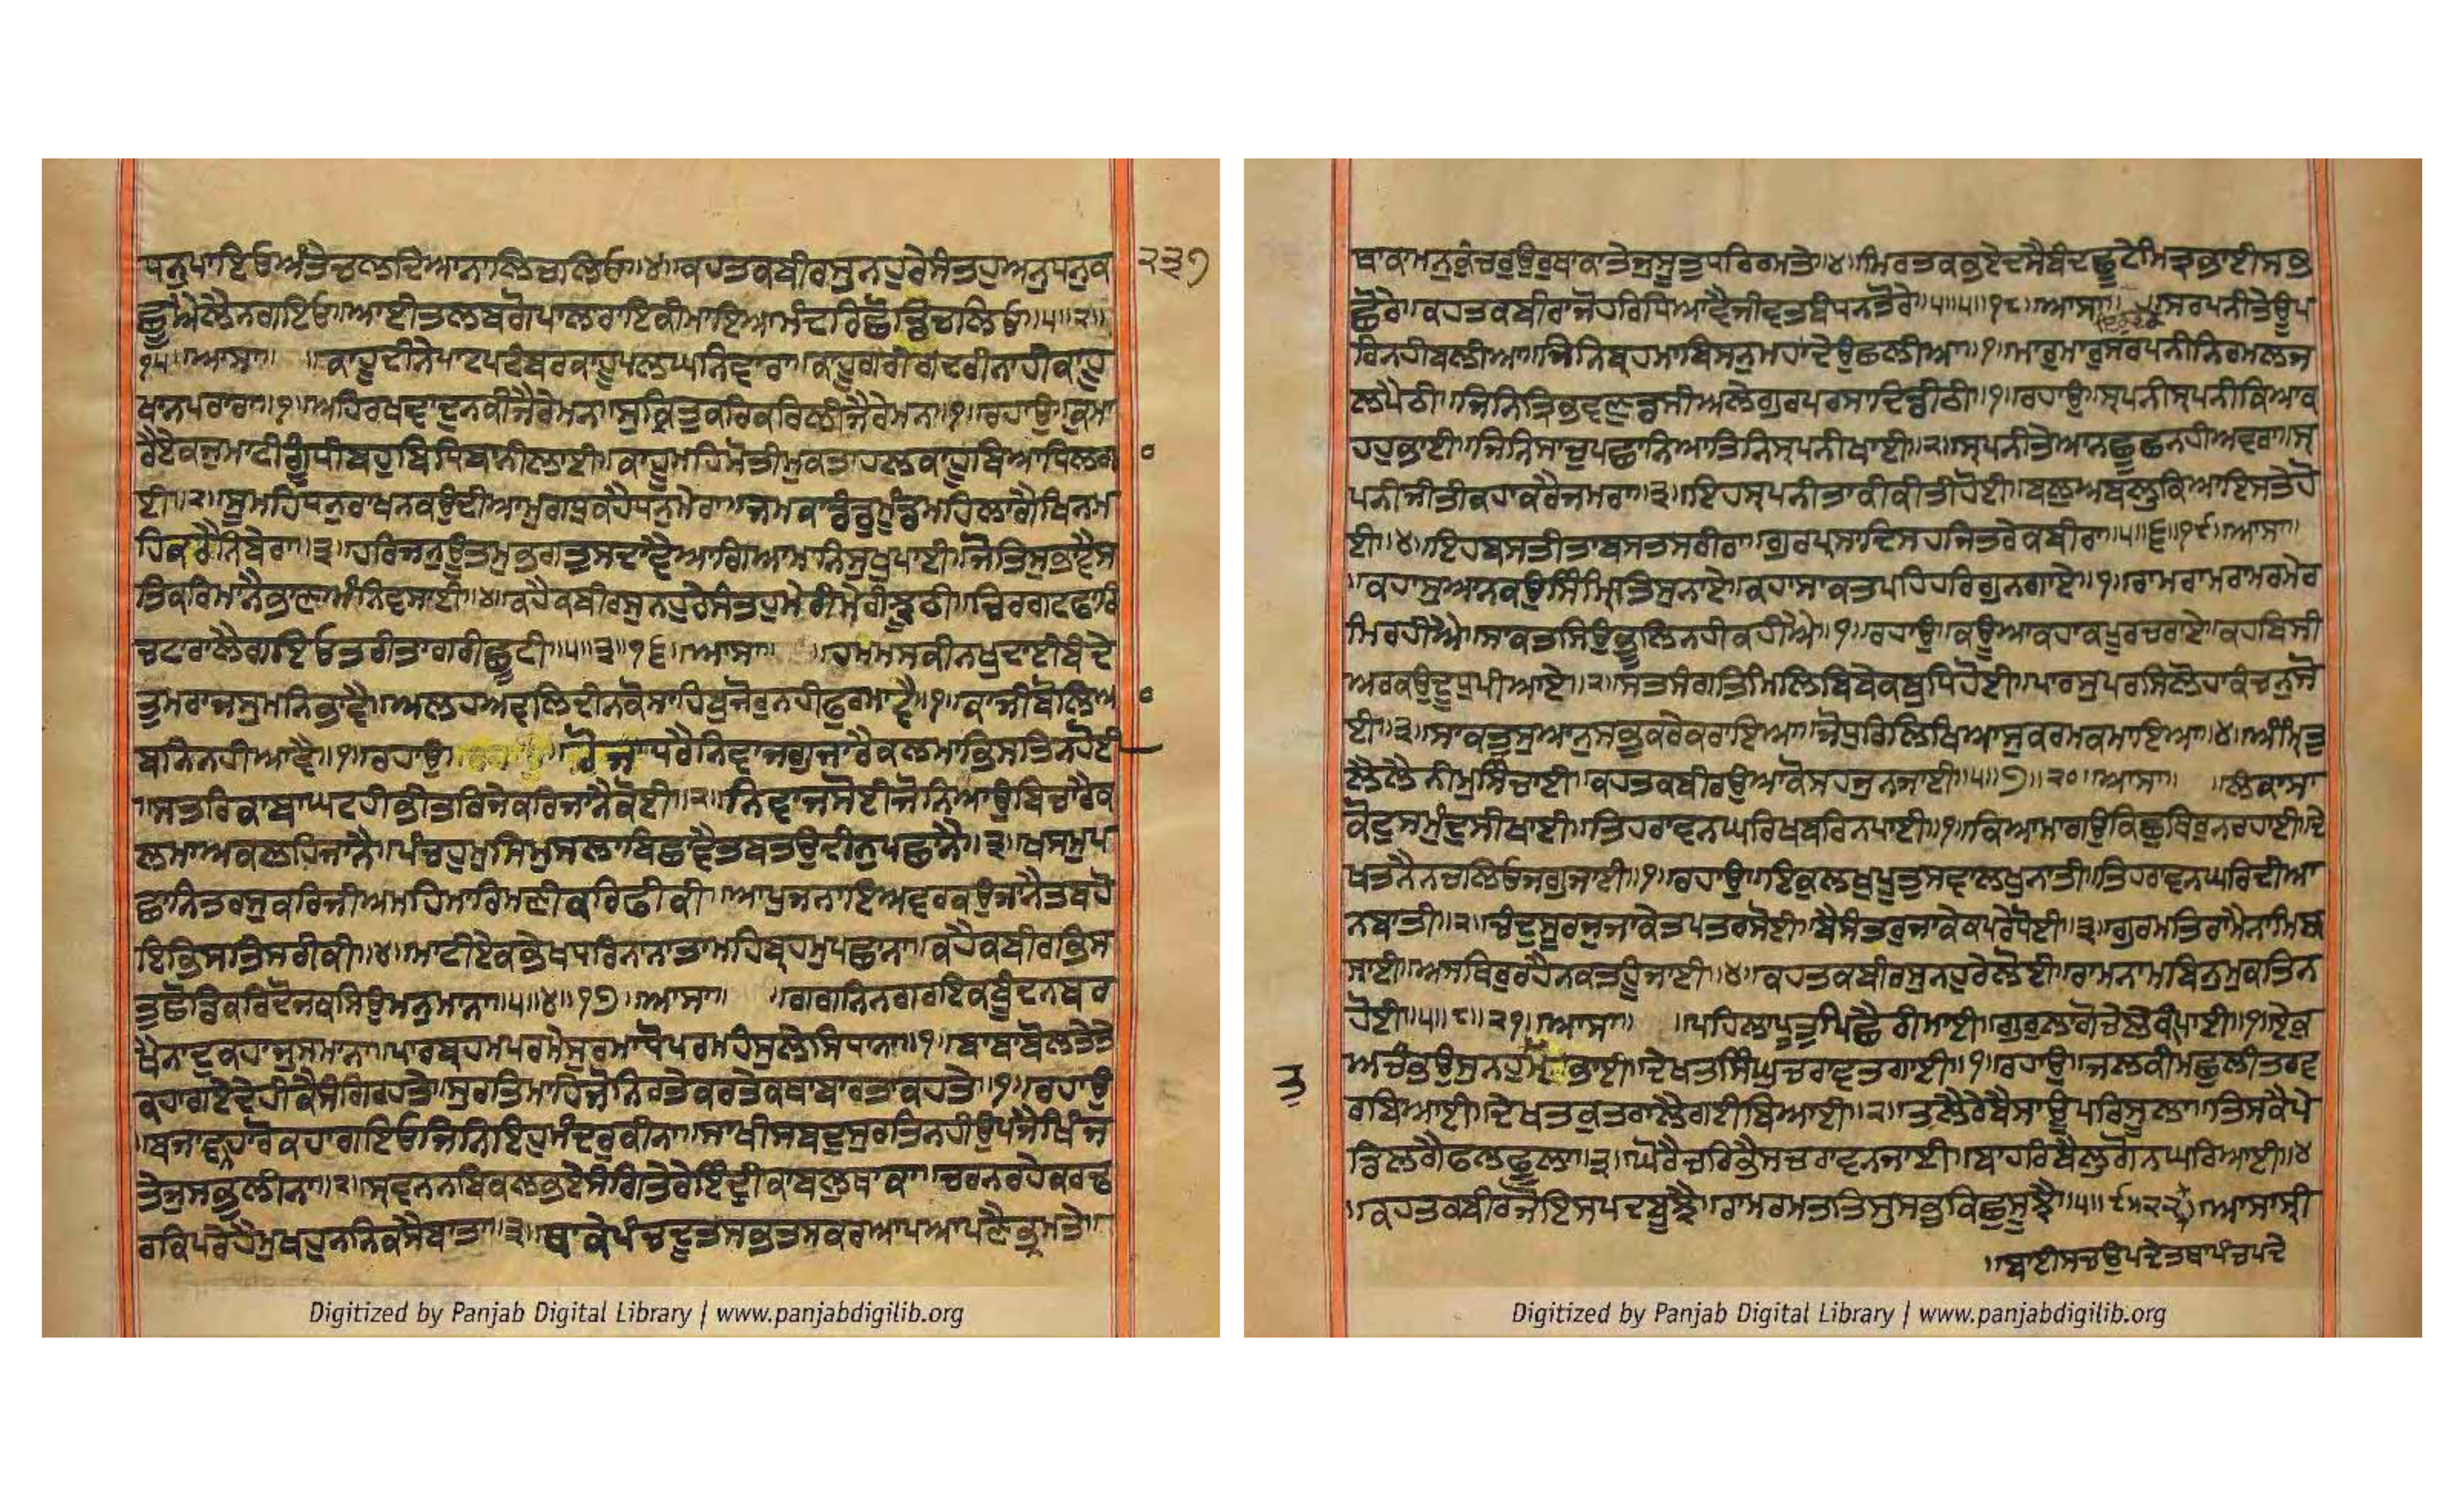 ਧਨੁਪਾਇਓਅੰਤੇਚਲਦਿਆਨਾਲਿਚਾਲਿਓ॥੪॥ਕਹਤਕਬੀਰਸੁਨਹੁਰੇਸੰਤਹੁਅਨੁਧਨੁਕ
ਛੂਐਲੈਨਗਇਓ॥ਆਈਤਲਬਗੋਪਾਲਰਾਇਕੀਮਾਇਆਮੰਦਰਿਛੋਡਿਚਲਿਓ॥੫॥੨॥
੧੫॥ਆਸਾ॥ ॥ਕਾਹੂਦੀਨੇਪਾਟਪਟੰਬਰਕਾਹੂਪਲਘਨਿਵਾਰਾ॥ਕਾਹੂਗਰੀਗੋਦਰੀਨਾਹੀਕਾਹੂ
ਖਾਨਪਰਾਰਾ॥੧॥ਅਹਿਰਖਵਾਦੁਨਕੀਜੈਰੇਮਨਾ॥ਸੁਕ੍ਰਿਤੁਕਰਿਕਰਿਲੀਜੈਰੇਮਨਾ॥੧॥ਰਹਾਉ॥ਕੁਮਾ
ਰੈਏਕਜੁਮਾਟੀਗੂੰਧੀਬਹੁਬਿਧਿਬਾਨੀਲਾਈ॥ਕਾਹੂਮਹਿਮੋਤੀਮੁਕਤਾਹਲਕਾਹੂਬਿਆਧਿਲਗਾ
ਈ॥੨॥ਸੂਮਹਿਧਨੁਰਾਖਨਕਉਦੀਆਮੁਗਧੁਕਹੈਧਨੁਮੇਰਾ॥ਜਮਕਾਡੰਡੁਮੂੰਡਮਹਿਲਾਗੈਖਿਨਮ
ਹਿਕਰੈਨਿਬੇਰਾ॥੩॥ਹਰਿਜਨੁਊਤਮੁਭਗਤੁਸਦਾਵੈਆਗਿਆਮਨਿਸੁਖੁਪਾਈ॥ਜੋਤਿਸੁਭਾਵੈਸ
ਤਿਕਰਿਮਾਨੈਭਾਣਾਮੰਨਿਵਸਾਈ॥੪॥ਕਹੈਕਬੀਰਸੁਨਹੁਰੇਸੰਤਹੁਮੇਰੀਮੇਰੀਝੂਠੀ॥ਚਿਰਗਟਫਾਰਿ
ਚਟਾਰਾਲੈਗਇਓਤਰੀਤਾਗਰੀਛੂਟੀ॥੫॥੩॥੧੬॥ਆਸਾ॥ ॥ਹਮਮਸਕੀਨਖੁਦਾਈਬੰਦੇ
ਤੁਮਰਾਜਸੁਮਨਿਭਾਵੈ॥ਅਲਹਅਵਲਿਦੀਨਕੋਸਾਹਿਬੁਜੋਰੁਨਹੀਫੁਰਮਾਵੈ॥੧॥ਕਾਜੀਬੋਲਿਆ
ਬਨਿਨਹੀਆਵੈ॥੧॥ਰਹਾਉ॥ ਰੋਜਾਧਰੈਨਿਵਾਜਗੁਜਾਰੈਕਲਮਾਭਿਸਤਿਨਹੋਈ
॥ਸਤਰਿਕਾਬਾਘਟਹੀਭੀਤਰਿਜੇਕਰਿਜਾਨੈਕੋਈ॥੨॥ਨਿਵਾਜਸੋਈਜੋਨਿਆਉਬਿਚਾਰੈਕ
ਲਮਾਅਕਲਹਿਜਾਨੈ॥ਪੰਚਹੁਮੁਸਿਮੁਸਲਾਬਿਛਾਵੈਤਬਤਉਦੀਨੁਪਛਾਨੈ॥੩॥ਖਸਮੁਪ
ਛਾਨਿਤਰਸੁਕਰਿਜੀਅਮਹਿਮਾਰਿਮਣੀਕਰਿਫੀਕੀ॥ਆਪੁਜਨਾਇਅਵਰਕਉਜਾਨੈਤਬਹੋ
ਇਭਿਸਤਿਸਰੀਕੀ॥੪॥ਮਾਟੀਏਕਭੇਖਧਰਿਨਾਨਾਤਾਮਹਿਬ੍ਰਹਮੁਪਛਾਨਾ॥ਕਹੈਕਬੀਰਾਭਿਸ
ਤੁਛੋਡਿਕਰਿਦੋਜਕਸਿਉਮਨੁਮਾਨਾ॥੫॥੪॥੧੭॥ਆਸਾ॥ ॥ਗਗਨਿਨਗਰਇਕਬੂੰਦਨਬਰ
ਖੈਨਾਦੁਕਹਾਜੁਸਮਾਨਾ॥ਪਾਰਬ੍ਰਹਮਪਰਮੇਸੁਰਮਾਧੋਪਰਮਹੰਸੁਲੇਸਿਧਾਨਾ॥੧॥ਬਾਬਾਬੋਲਤੇਤੇ
ਕਹਾਗਏਦੇਹੀਕੇਸੰਗਿਰਹਤੇ॥ਸੁਰਤਿਮਾਹਿਜੋਨਿਰਤੇਕਰਤੇਕਥਾਬਾਰਤਾਕਹਤੇ॥੧॥ਰਹਾਉ
॥ਬਜਾਵਨਹਾਰੋਕਹਾਗਇਓਜਿਨਿਇਹੁਮੰਦਰੁਕੀਨਾ॥ਸਾਖੀਸਬਦੁਸੁਰਤਿਨਹੀਉਪਜੈਖਿੰਚ
ਤੇਜੁਸਭੁਲੀਨਾ॥੨॥ਸ੍ਰਵਨਨਬਿਕਲਭਏਸੰਗਿਤੇਰੇਇੰਦ੍ਰੀਕਾਬਲੁਥਾਕਾ॥ਚਰਨਰਹੇਕਰਢ
ਰਕਿਪਰੇਹੈਮੁਖਹੁਨਨਿਕਸੈਬਾਤਾ॥੩॥ਥਾਕੇਪੰਚਦੂਤਸਭਤਸਕਰਆਪਆਪਣੈਭ੍ਰਮਤੇ॥
੨੩੭
ਥਾਕਾਮਨੁਕੁੰਚਰਉਰੁਥਾਕਾਤੇਜੁਸੂਤੁਧਰਿਰਮਤੇ॥੪॥ਮਿਰਤਕਭਏਦਸੈਬੰਦਛੂਟੇਮਿਤ੍ਰਭਾਈਸਭ
ਛੋਰੇ॥ਕਹਤਕਬੀਰਾਜੋਹਰਿਧਿਆਵੈਜੀਵਤਬੰਧਨਤੋਰੇ॥੫॥੫॥੧੮॥ਆਸਾ॥ ॥ਸਰਪਨੀਤੇਊਪ
ਰਿਨਹੀਬਲੀਆ॥ਜਿਨਿਬ੍ਰਹਮਾਬਿਸਨੁਮਹਾਦੇਉਛਲੀਆ॥੧॥ਮਾਰੁਮਾਰੁਸਰਪਨੀਨਿਰਮਲਜ
ਲਪੈਠੀ॥ਜਿਨਿਤ੍ਰਿਭਵਣੁਡਸੀਅਲੇਗੁਰਪਰਸਾਦਿਡੀਠੀ॥੧॥ਰਹਾਉ॥ਸ੍ਰਪਨੀਸ੍ਰਪਨੀਕਿਆਕ
ਹਹੁਭਾਈ॥ਜਿਨਿਸਾਚੁਪਛਾਨਿਆਤਿਨਿਸ੍ਰਪਨੀਖਾਈ॥੨॥ਸ੍ਰਪਨੀਤੇਆਨਛੂਛਨਹੀਅਵਰਾ॥ਸ੍ਰ
ਪਨੀਜੀਤੀਕਹਾਕਰੈਜਮਰਾ॥੩॥ਇਹਸ੍ਰਪਨੀਤਾਕੀਕੀਤੀਹੋਈ॥ਬਲੁਅਬਲੁਕਿਆਇਸਤੇਹੋ
ਈ॥੪॥ਇਹਬਸਤੀਤਾਬਸਤਸਰੀਰਾ॥ਗੁਰਪ੍ਰਸਾਦਿਸਹਜਿਤਰੇਕਬੀਰਾ॥੫॥੬॥੧੯॥ਆਸਾ॥
॥ਕਹਾਸੁਆਨਕਉਸਿੰਮ੍ਰਿਤਿਸੁਨਾਏ॥ਕਹਾਸਾਕਤਪਹਿਹਰਿਗੁਨਗਾਏ॥੧॥ਰਾਮਰਾਮਰਾਮਰਮੇਰ
ਮਿਰਹੀਐ॥ਸਾਕਤਸਿਉਭੂਲਿਨਹੀਕਹੀਐ॥੧॥ਰਹਾਉ॥ਕਊਆਕਹਾਕਪੂਰਚਰਾਏ॥ਕਹਬਿਸੀ
ਅਰਕਉਦੂਧੁਪੀਆਏ॥੨॥ਸਤਸੰਗਤਿਮਿਲਿਬਿਬੇਕਬੁਧਿਹੋਈ॥ਪਾਰਸੁਪਰਸਿਲੋਹਾਕੰਚਨੁਸੋ
ਈ॥੩॥ਸਾਕਤੁਸੁਆਨੁਸਭੁਕਰੇਕਰਾਇਆ॥ਜੋਧੁਰਿਲਿਖਿਆਸੁਕਰਮਕਮਾਇਆ॥੪॥ਅੰਮ੍ਰਿਤੁ
ਲੈਲੈਨੀਮੁਸਿੰਚਾਈ॥ਕਹਤਕਬੀਰਉਆਕੋਸਹਜੁਨਜਾਈ॥੫॥੭॥੨੦॥ਆਸਾ॥ ॥ਲੰਕਾਸਾ
ਕੋਟੁਸਮੁੰਦ੍ਰਸੀਖਾਈ॥ਤਿਹਰਾਵਨਘਰਿਖਬਰਿਨਪਾਈ॥੧॥ਕਿਆਮਾਗਉਕਿਛੁਥਿਰੁਨਰਹਾਈ॥ਦੇ
ਖਤਨੈਨਚਲਿਓਜਗੁਜਾਈ॥੧॥ਰਹਾਉ॥ਇਕੁਲਖੁਪੂਤਸਵਾਲਖੁਨਾਤੀ॥ਤਿਹਰਾਵਨਘਰਿਦੀਆ
ਨਬਾਤੀ॥੨॥ਚੰਦੁਸੂਰਜੁਜਾਕੇਤਪਤਰਸੋਈ॥ਬੈਸੰਤਰੁਜਾਕੇਕਪਰੇਧੋਈ॥੩॥ਗੁਰਮਤਿਰਾਮੈਨਾਮਿਬ
ਸਾਈ॥ਅਸਥਿਰੁਰਹੈਨਕਤਹੂੰਜਾਈ॥੪॥ਕਹਤਕਬੀਰਸੁਨਹੁਰੇਲੋਈ॥ਰਾਮਨਾਮਬਿਨੁਮੁਕਤਿਨ
ਹੋਈ॥੫॥੮॥੨੧॥ਆਸਾ॥ ॥ਪਹਿਲਾਪੂਤੁਪਿਛੈਰੀਮਾਈ॥ਗੁਰੁਲਾਗੋਚੇਲੇਕੀਪਾਈ॥੧॥ਏਕੁ
ਅਚੰਭਉਸੁਨਹੁਮ ਭਾਈ॥ਦੇਖਤਸਿੰਘੁਚਰਾਵਤਗਾਈ॥੧॥ਰਹਾਉ॥ਜਲਕੀਮਛੁਲੀਤਰਵ
ਰਿਬਿਆਈ॥ਦੇਖਤਕੁਤਰਾਲੈਗਈਬਿਆਈ॥੨॥ਤਲੈਰੇਬੈਸਾਊਪਰਿਸੂਲਾ॥ਤਿਸਕੈਪੇ
ਡਿਲਗੈਫਲਫੂਲਾ॥੩॥ਘੋਰੈਚਰਿਭੈਸਚਰਾਵਨਜਾਈ॥ਬਾਹਰਿਬੈਲੁਗੋਨਘਰਿਆਈ॥੪
॥ਕਹਤਕਬੀਰਜੋਇਸਪਦਬੂਝੈ॥ਰਾਮਰਮਤਤਿਸੁਸਭੁਕਿਛੁਸੂਝੈ॥੫॥੯॥੨੨॥ਆਸਾਸ੍ਰੀ
॥ਬਾਈਸਚਉਪਦੇਤਥਾਪੰਚਪਦੇ
ਤੁ
Digitized by Panjab Digital Library | www.panjabdigilib.org
Digitized by Panjab Digital Library | www.panjabdigilib.org